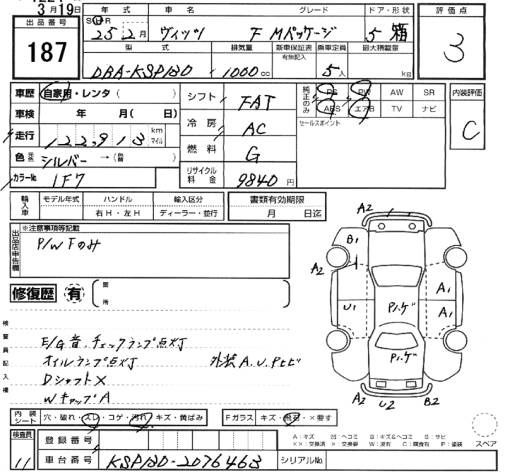 3月19日
出品番号 年式 車名 グレード ドア・形状 評価点
187 25年2月 ヴィッツ F Mパッケージ 5 箱 3
型式 排気量 新車保証書 有無記入 乗車定員 最大積載量
DBA-KSP130 1000cc 5人 kg
車歴 自家用・レンタ ( ) シフト FAT 純正のみ PS PW AW SR 内装評価
車検 年 月( 日) ABS エアB TV ナビ C
走行 122,913 km マイル 冷房 AC セールスポイント
色 シルバー →( ) 燃料 G
カラーNo 1F7 リサイクル料金 9840円
輸入車 モデル年式 ハンドル 輸入区分 書類有効期限
右H・左H ディーラー・並行 月 日迄
出品店申告欄 ※注意事項等記載
P/W Fのみ
修復歴 有 箇所
A2
B1
A2
A1
U1 Pルーゲ A1
Pルーゲ
A2 U2 B2
検査員記入欄
E/G音、チェックランプ点灯
オイルランプ点灯 外装A.U.Pヒビ
DシャフトX
WキャップA
内装シート 穴・破れ・スレ・コゲ・汚れ・キズ・黄ばみ Fガラス キズ・飛石・×要す
検査員 11 登録番号
A:キズ M:ヘコミ B:キズ&ヘコミ S:サビ
××:交換済 ×:交換要 W:波有 C:腐食有 P:塗装 スペア
車台番号 KSP130-2076463 シリアルNo